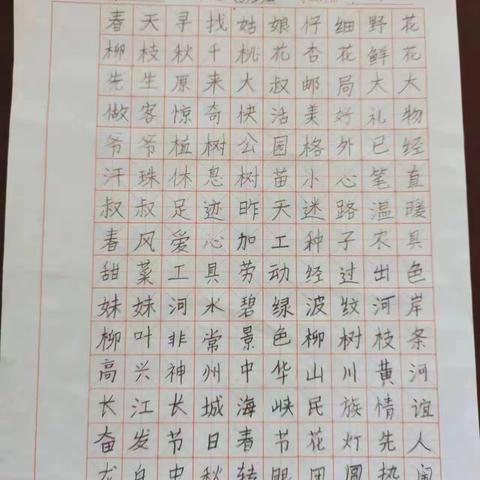 春天寻找姑娘仔细野花
柳枝秋千桃花杏花鲜花
先生原来大叔邮局太太
做客惊奇快活美好礼物
爷爷植树公园格外已经
汗珠休息树苗小心笔直
叔叔足迹昨天迷路温暖
春风爱心加工种子农具
甜菜工具劳动经过出色
妹妹河水碧绿波纹河岸
柳叶非常景色柳树枝条
高兴神州中华山川黄河
长江长城海峡民族情谊
奋发节日春节花灯先人
龙舟中秋转眼团圆热闹